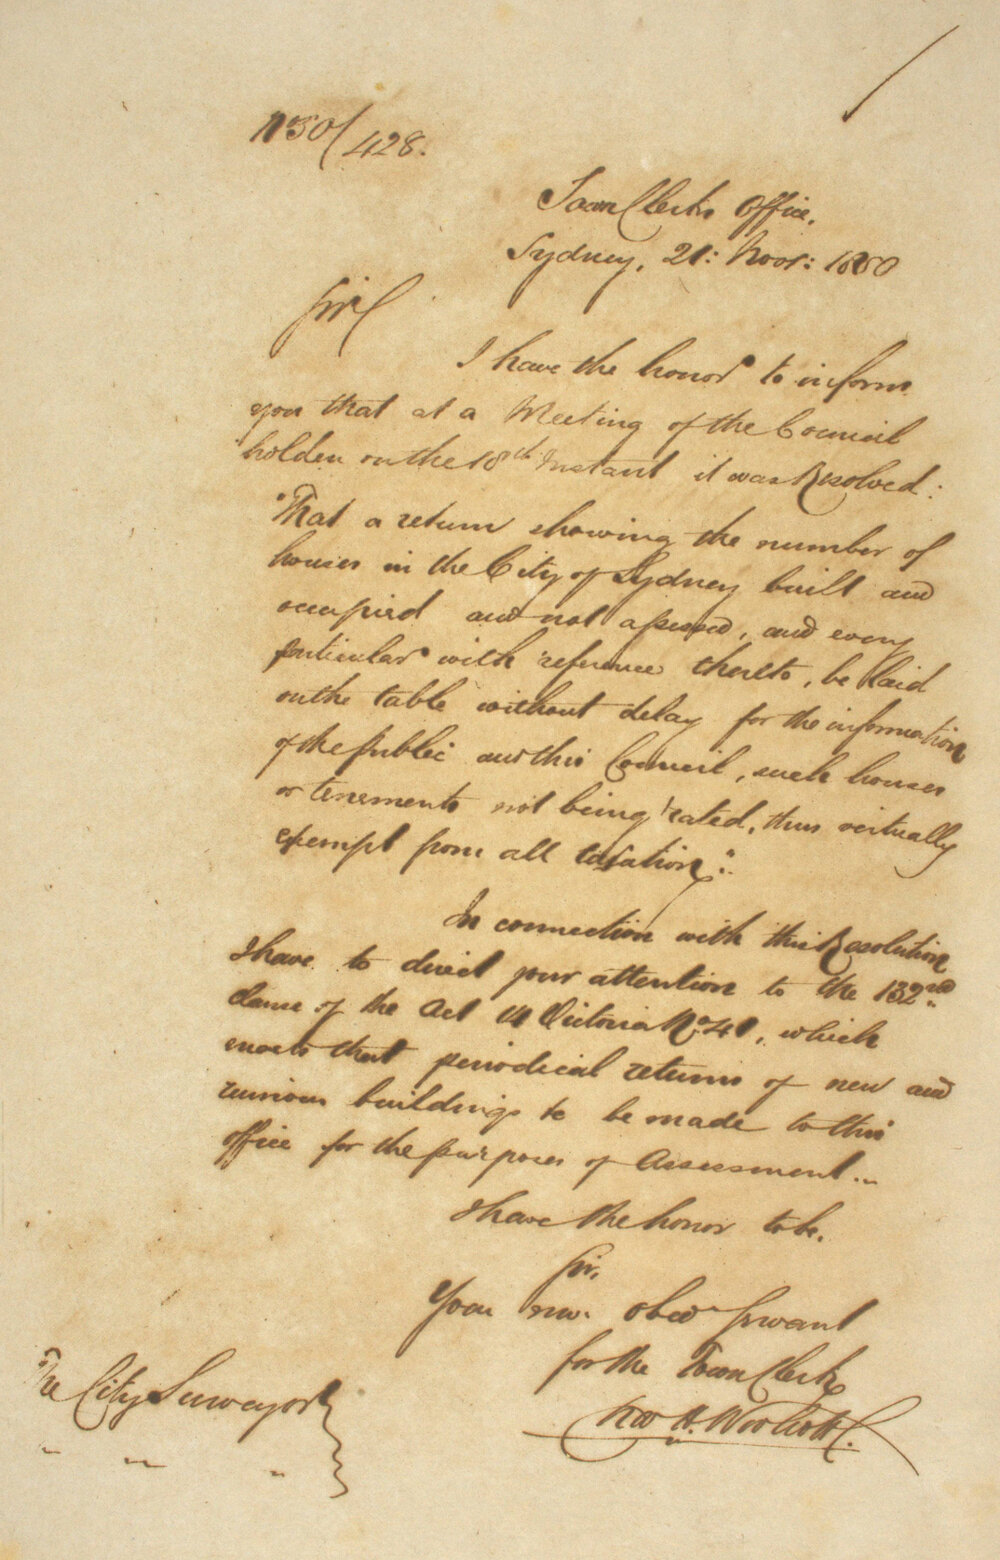 No 50/428.
Town Clerks Office,
Sydney, 21: Novr: 1850
Sir
I have the honor to inform
you that at a Meeting of the Council
holden on the 18th Instant it was Resolved:
"That a return showing the number of
houses in the City of Sydney built and
occupied and not assessed, and every
particular with reference thereto, be laid
on the table without delay for the information
of the public and this Council, such houses
or tenements not being rated, thus virtually
exempt from all taxation."
In connection with this Resolution
I have to direct your attention to the 132nd
clause of the Act 14 Victoria No. 41, which
enacts that periodical returns of new and
ruinous buildings to be made to this
office for the purposes of Assessment...
I have the honor to be.
Sir,
Your obed Servant
for the Town Clerk
H. Woolcott
The City Surveyor